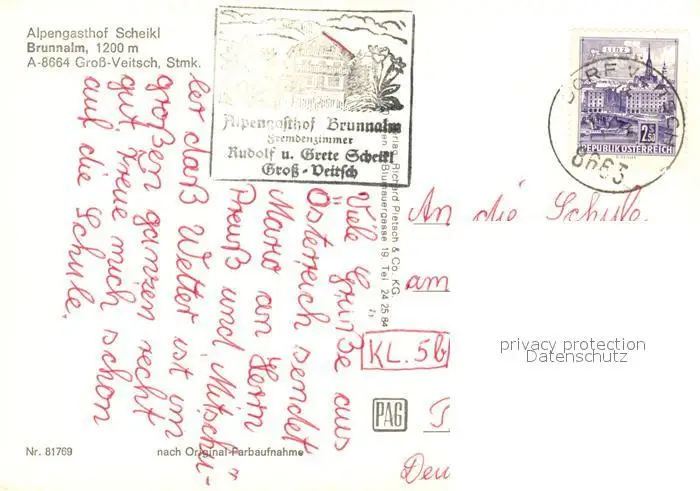 Alpengasthof Scheikl
Brunnalm, 1200 m
A-8664 Groß-Veitsch, Stmk.
Alpengasthof Brunnalm
Fremdenzimmer
Rudolf u. Grete Scheikl
Groß-Veitsch
LINZ
2.50
REPUBLIK ÖSTERREICH
8663
Viele Grüße aus
Österreich sendet
Mario an Herrn
Preuß und Mitschü-
ler daß Wetter ist im
großen ganzen recht
gut freue mich schon
auf die Schule.
Richard Pietsch & Co. KG.
Blumauergasse 19, Tel. 24 25 84
An die Schule
am
KL. 5b
privacy protection
Datenschutz
PAG
Nr. 81769
nach Original-Farbaufnahme